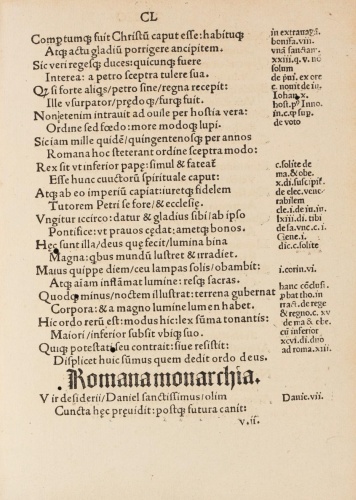 CL
Comptumq̃ fuit Christũ caput esse: habituq̃
Atq̃ actu gladiũ porrigere ancipitem.
Sic veri regesq̃ duces: quicunq̃ fuere
Interea: a petro sceptra tulere sua.
Qz si forte aliq̃s/petro sine/regna recepit:
Ille vsurpator/prędoq̃/furq̃ fuit.
Non etenim intrauit ad ouile per hostia vera:
Ordine sed fœdo: more modoq̃ lupi.
Sic iam mille quidẽ/quingentenosq̃ per annos
Romana hoc steterant ordine sceptra modo:
Rex sit vt inferior papę: simul & fateat̃
Esse hunc cunctorũ spirituale caput:
Atq̃ ab eo imperiũ capiat: iuretq̃ fidelem
Tutorem Petri se fore/& ecclesię.
Vngitur iccirco: datur & gladius sibi/ab ipso
Pontifice: vt prauos cędat: ametq̃ bonos.
Hęc sunt illa/deus quę fecit/lumina bina
Magna: q̃bus mundũ lustret & irradiet.
Maius quippe diem/ceu lampas solis/obambit:
Atq̃ aĩam inflãmat lumine: resq̃ sacras.
Quodq̃ minus/noctem illustrat: terrena gubernat
Corpora: & a magno lumine lumen habet.
Hic ordo rerũ est: modus hic: lex sũma tonantis:
Maiori/inferior subsit vbiq̃ suo.
Quiq̃ potestati seu contrait: siue resistit:
Displicet huic sũmus quem dedit ordo deus.
Romana monarchia.
Vir desiderii/Daniel sanctissimus/olim
Cuncta hęc pręuidit: postq̃ futura canit:
v.ii.
in extrauagã.
bonifa. viii.
vnã sanctam.
xxiii. q. v. nõ
solum
de pñi. ex ore
c. nouit de iu.
Iohan. x.
host. p̃ Inno.
in. c. q̃ sup.
de voto
c. solite de
ma. & obe.
x. di. suscipit̃.
de elec. vene-
rabilem
cle. i. de iu. in
lxiii. di. tibi
de sa. vnc. c. i.
Gene. i.
dic. c. solite
i. corin. vi.
hanc cõclusi.
p̃bat tho. in
tract. de rege
& regno. c. xv
de ma & obe.
cũ inferior
xcvi. di. duo
ad roma. xiii.
Danie. vii.